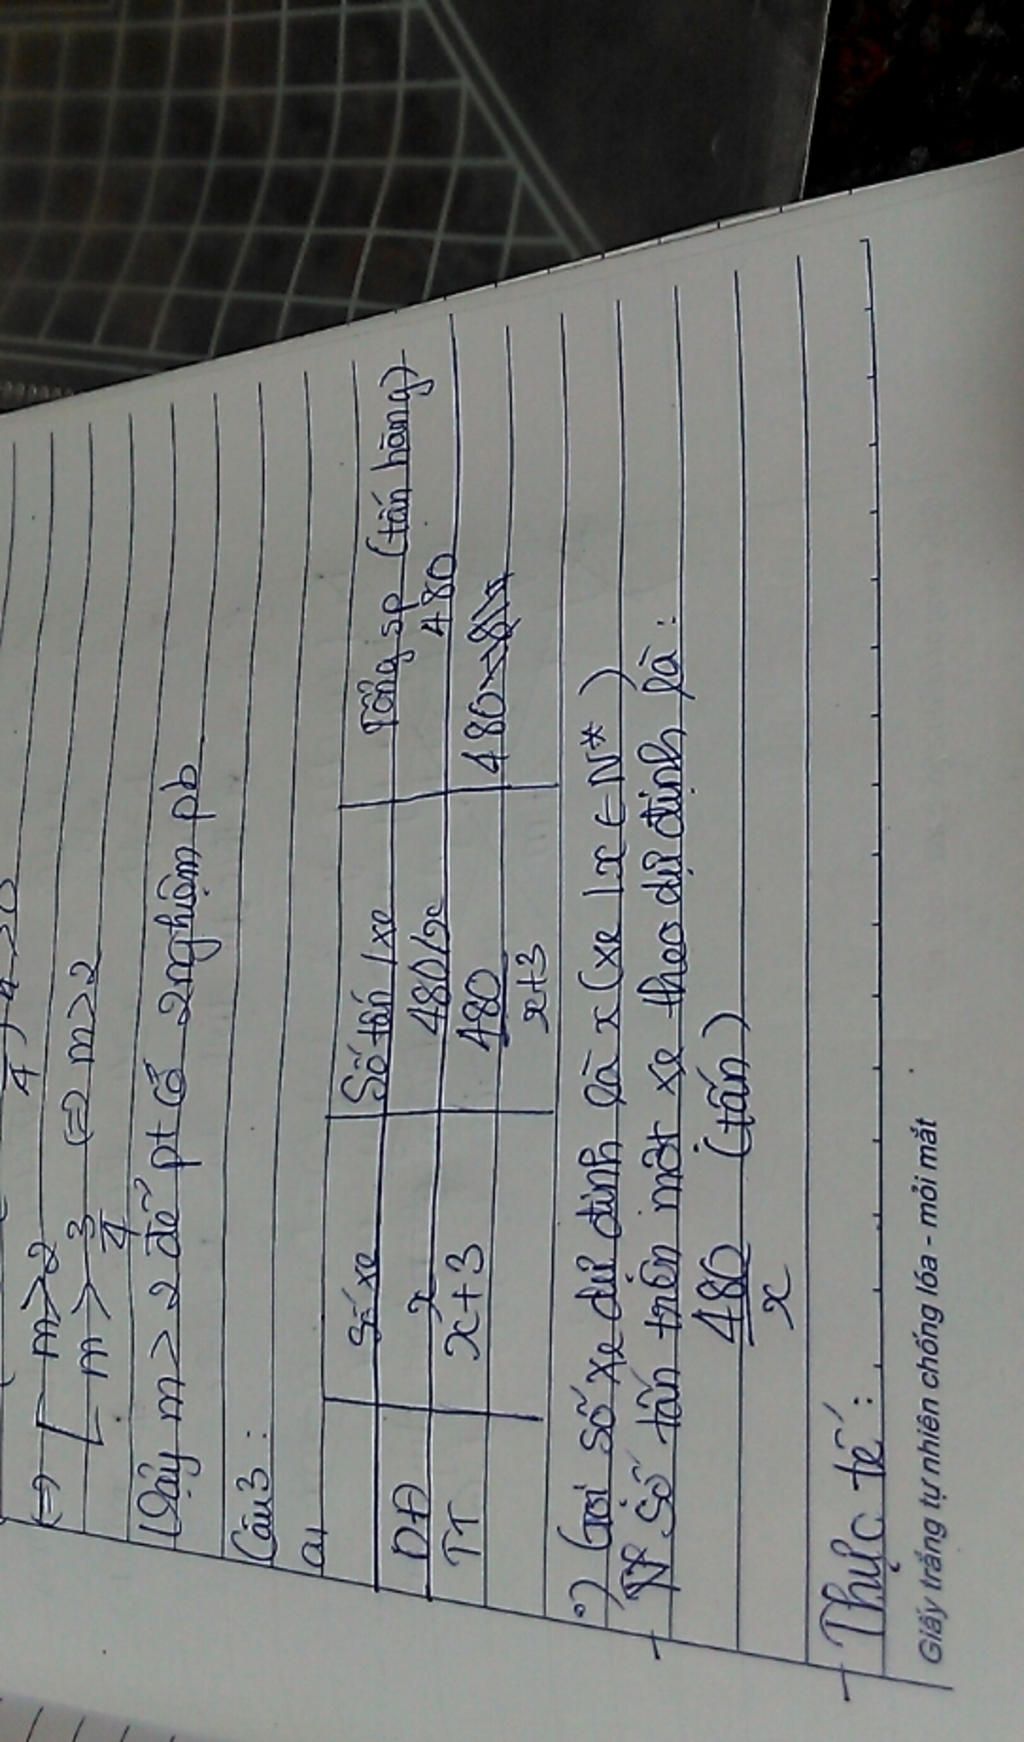 ⇔ [ m > 2
[ m > 3/4 ⇔ m > 2
Vậy m > 2 để pt có 2 nghiệm pb
Câu 3:
a,
Số xe Số tấn / xe Tổng sp (tấn hàng)
DĐ x 480/x 480
TT x+3 480/x+3 480
°) Gọi số xe dự định là x (xe | x ∈ N*)
Số tấn trên một xe theo dự định là:
480/x (tấn)
- Thực tế:
Giấy trắng tự nhiên chống lóa - mỏi mắt